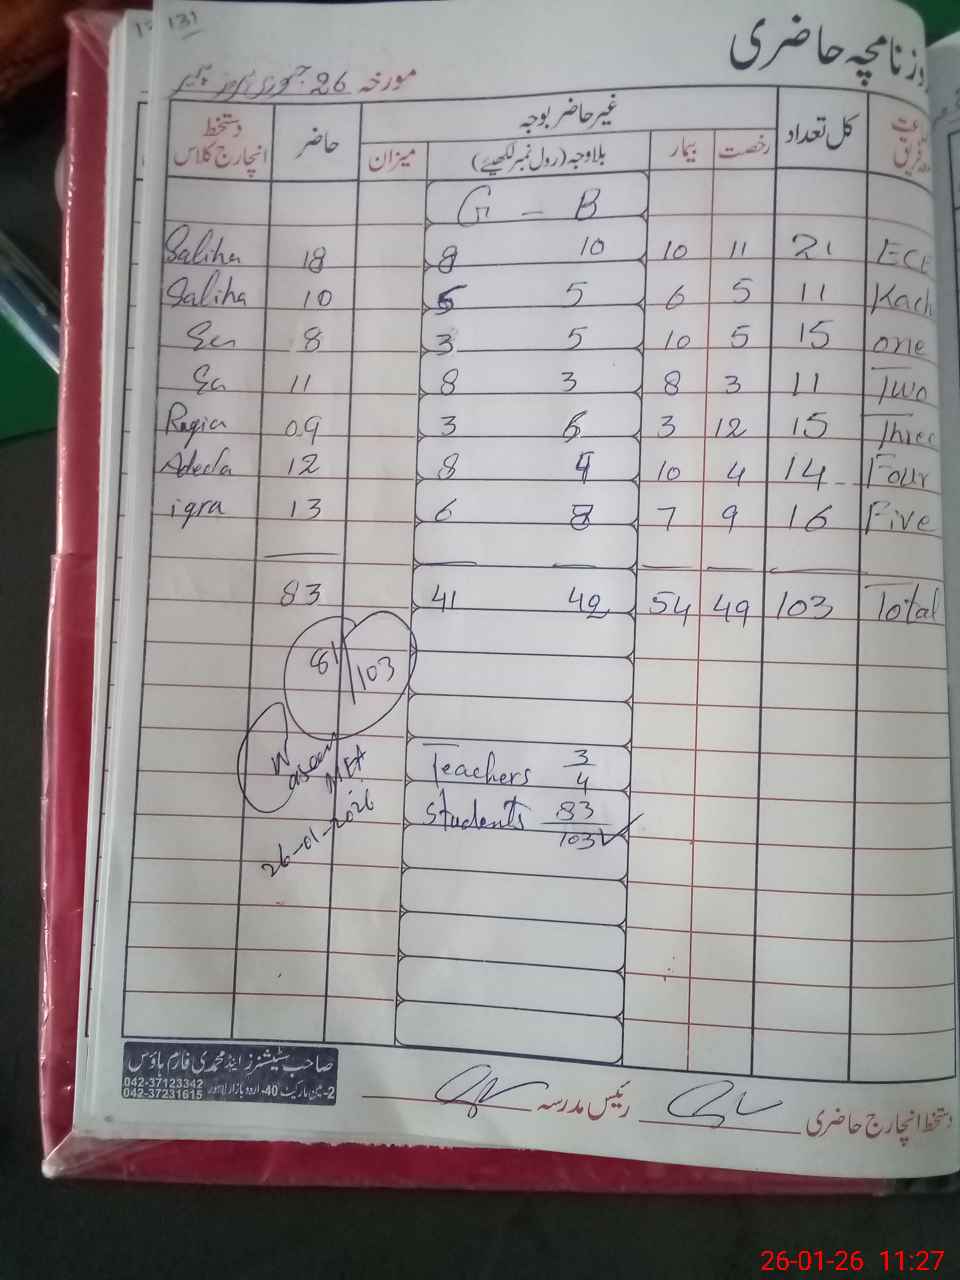 131
روزنامچہ حاضری
مورخہ 26 جنوری بروز پیر
کل تعداد
غیر حاضر بوجہ
حاضر
دستخط انچارج کلاس
رخصت
بیمار
بلاوجہ (رول نمبر لکھیئے)
میزان
G - B
Saliha 18 8 10 10 11 21 ECE
Saliha 10 5 5 6 5 11 Kach
8 3 5 10 5 15 one
11 8 3 8 3 11 Two
Razia 09 3 6 3 12 15 Three
Adeela 12 8 4 10 4 14 Four
iqra 13 6 8 7 9 16 Five
83 41 42 54 49 103 Total
81/103
Waseem
MEA
26-01-2026
Teachers 3/4
Students 83/103
صاحب سٹیشنرز اینڈ محمدی فارم ہاؤس
042-37123342
042-37231615
2-مین مارکیٹ 40-اردو بازار لاہور
دستخط انچارج حاضری
رئیس مدرسہ
26-01-26 11:27